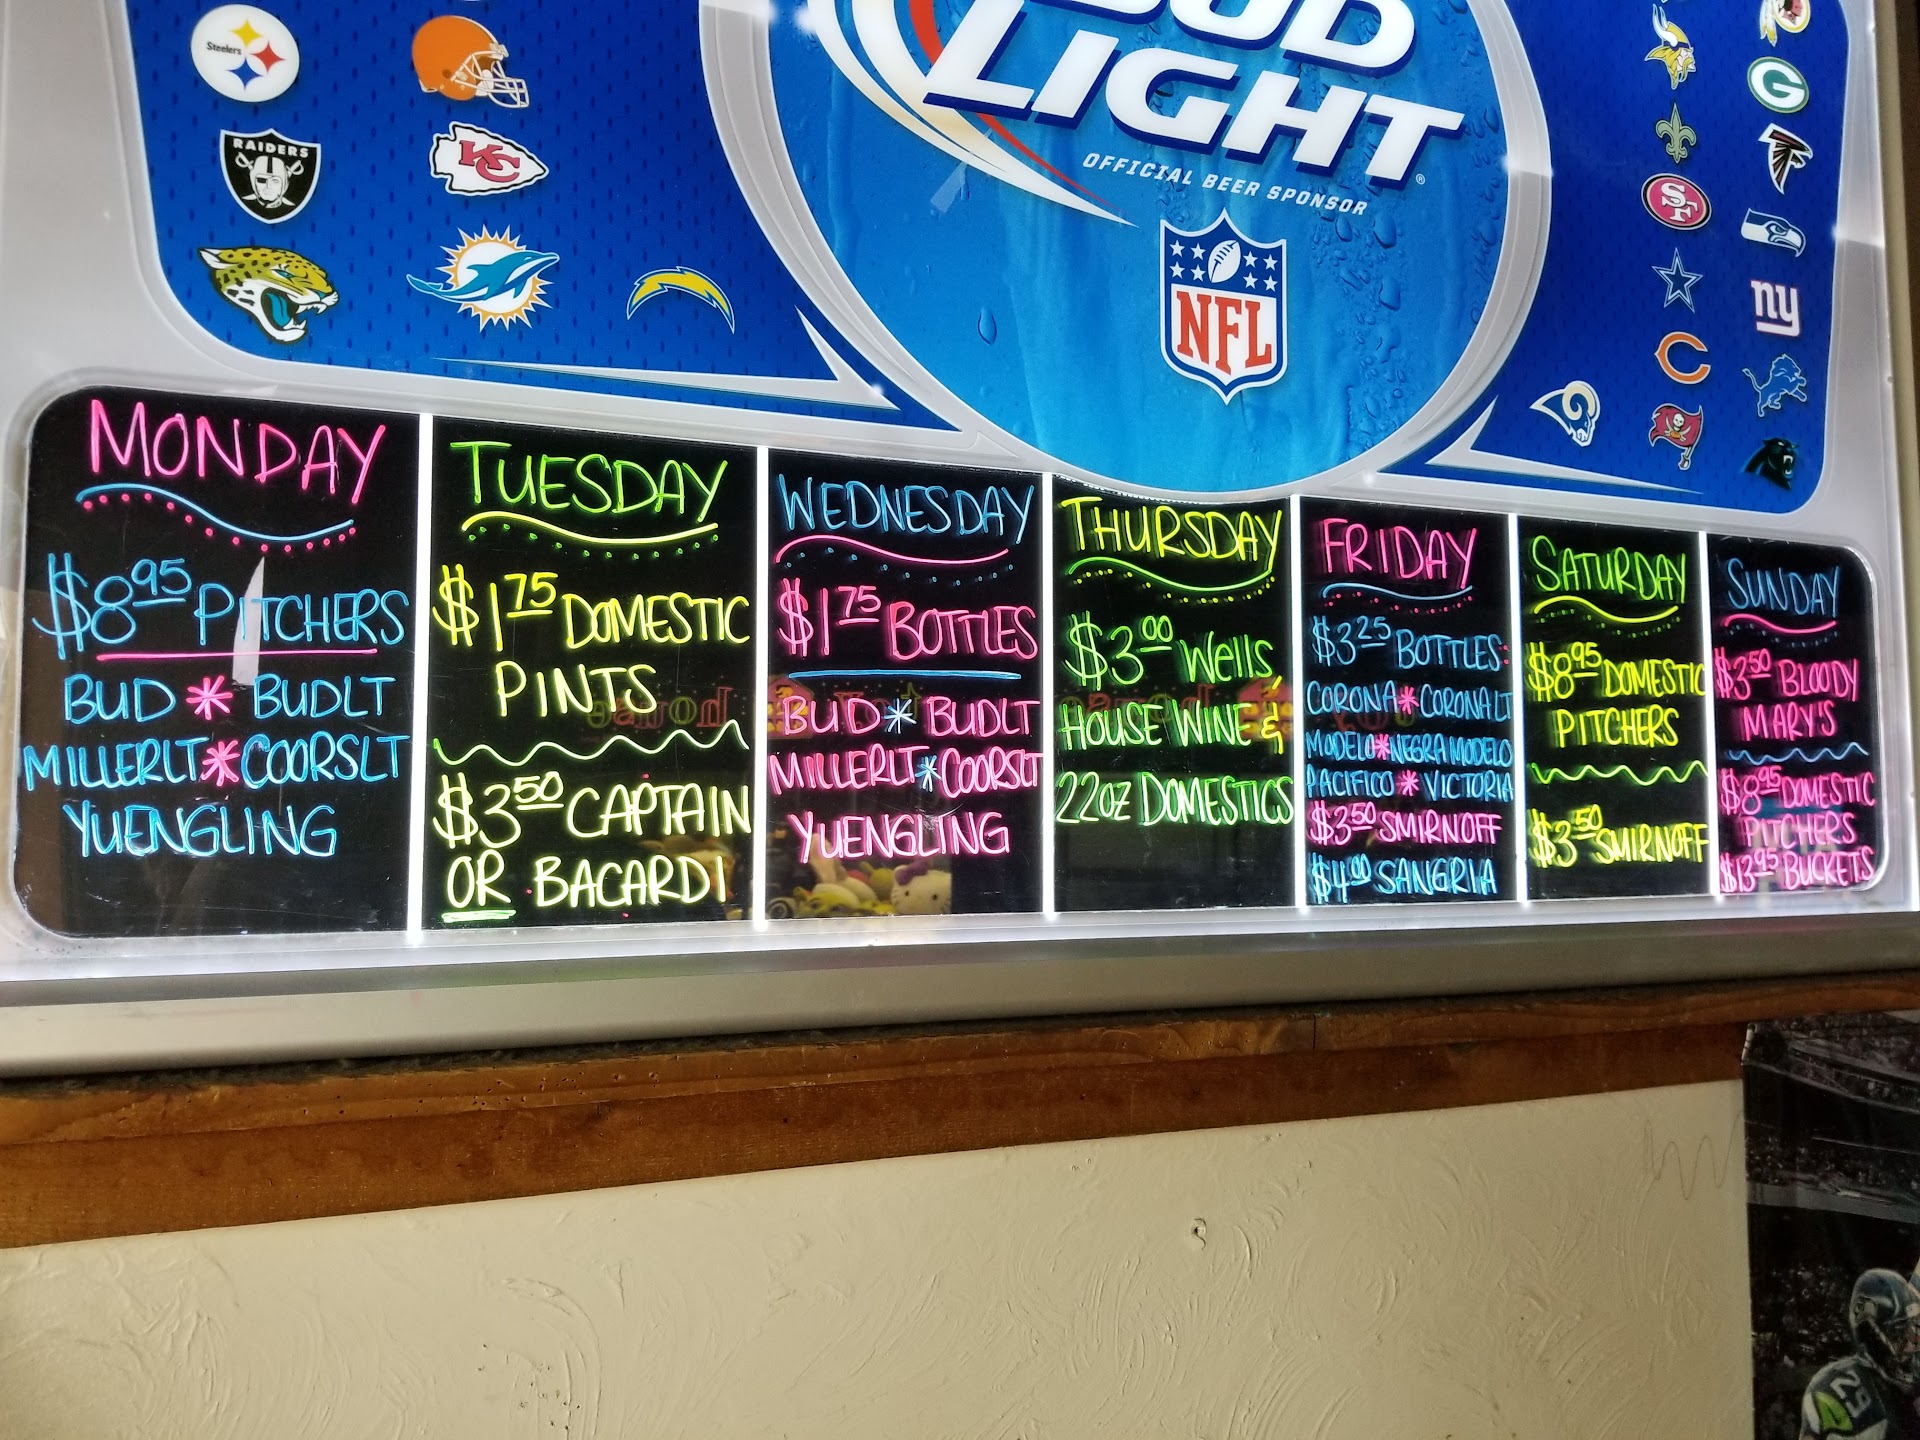 Steelers
RAIDERS
KC
BUD
LIGHT
OFFICIAL BEER SPONSOR
NFL
G
SF
ny
C
MONDAY
$8 95 PITCHERS
BUD * BUDLT
MILLERLT * COORSLT
YUENGLING
TUESDAY
$1 75 DOMESTIC
PINTS
$3 50 CAPTAIN
OR BACARDI
WEDNESDAY
$1 75 BOTTLES
BUD * BUDLT
MILLERLT * COORSLT
YUENGLING
THURSDAY
$3 00 Wells,
HOUSE WINE &
22OZ DOMESTICS
FRIDAY
$3 25 BOTTLES:
CORONA * CORONALT
MODELO * NEGRA MODELO
PACIFICO * VICTORIA
$3 50 SMIRNOFF
$4 00 SANGRIA
SATURDAY
$8 95 DOMESTIC
PITCHERS
$3 50 SMIRNOFF
SUNDAY
$3 50 BLOODY
MARY'S
$8 95 DOMESTIC
PITCHERS
$13 95 BUCKETS